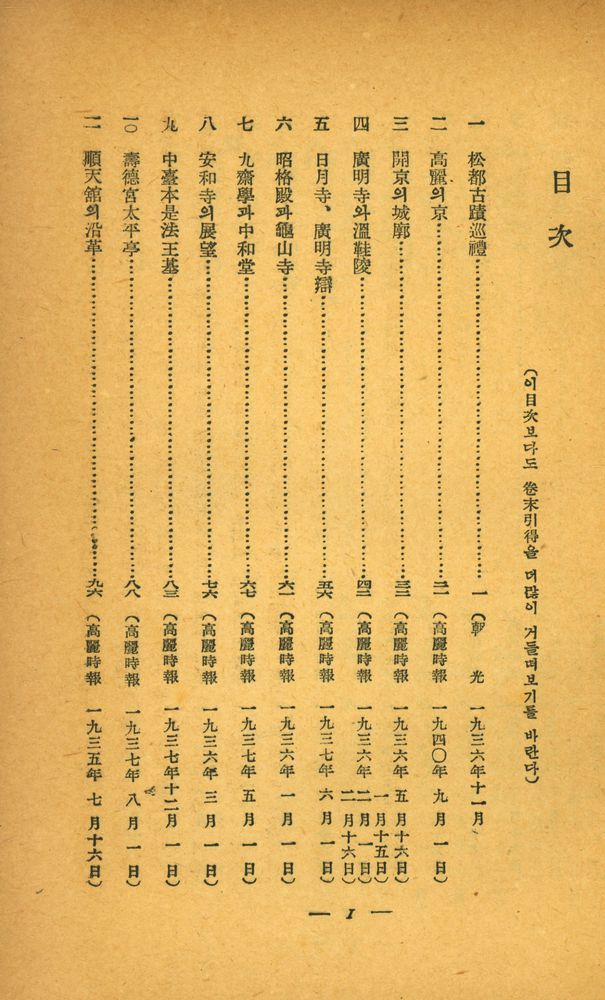 目次
(이目次보다도 卷末引得을 더많이 거들떠보기를 바란다)
一 松都古蹟巡禮……一 (朝光 一九三六年十一月
二 高麗의京……二一 (高麗時報 一九四〇年 九月 一日)
三 開京의城廓……三二 (高麗時報 一九三六年 五月十六日)
四 廣明寺와溫鞋陵……四二 (高麗時報 一九三六年 一月十五日) 二月 一日) 二月十六日)
五 日月寺、廣明寺辯……五六 (高麗時報 一九三七年 六月 一日)
六 昭格殿과龜山寺……六一 (高麗時報 一九三六年 一月 一日)
七 九齋學과中和堂……六七 (高麗時報 一九三七年 五月 一日)
八 安和寺의展望……七六 (高麗時報 一九三六年 三月 一日)
九 中臺本是法王基……八三 (高麗時報 一九三七年十二月 一日)
一〇 壽德宮太平亭……八八 (高麗時報 一九三七年 八月 一日)
一一 順天館의沿革……九六 (高麗時報 一九三五年 七月十六日)
— I —